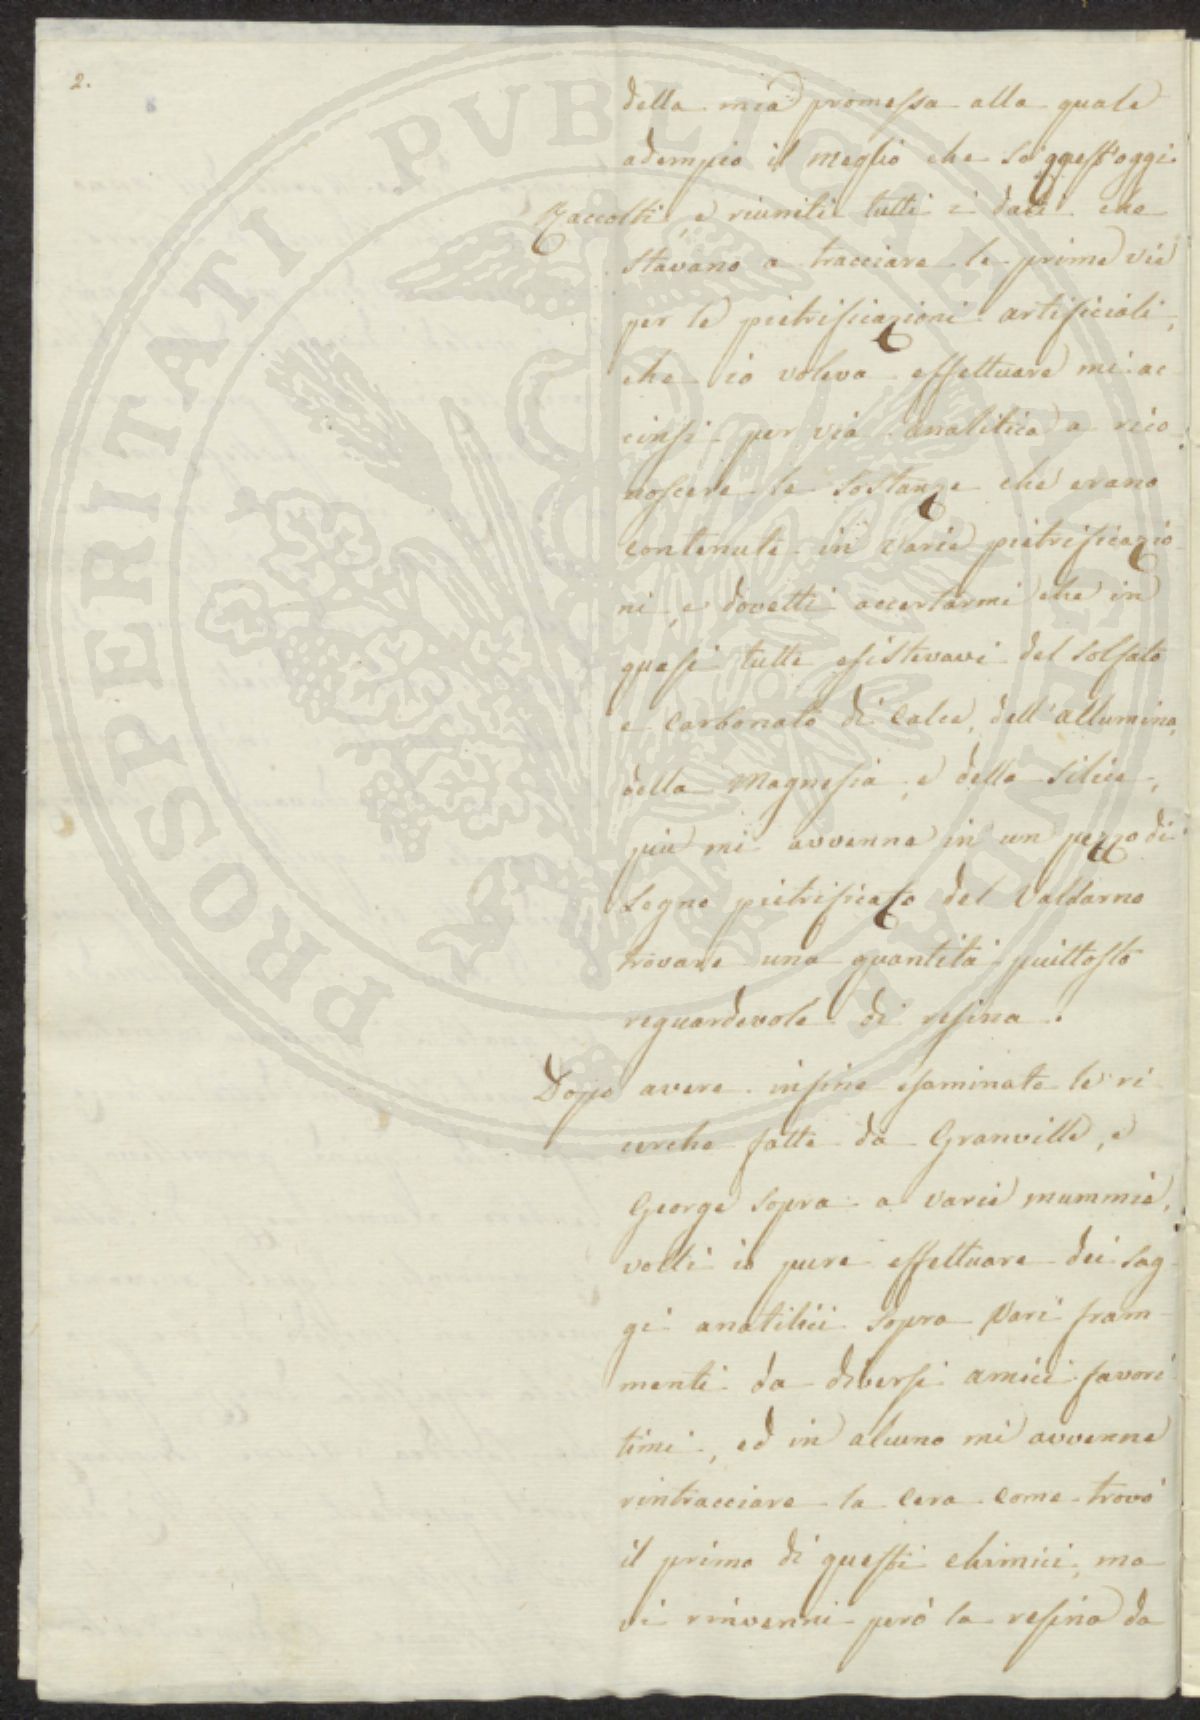 2.
della mia promessa alla quale
adempio il meglio che so quest'oggi.
Raccolti, e riuniti tutti i dati che
stavano a tracciare le prime vie
per le pietrificazioni artificiali,
che io voleva effettuare mi ac
cinsi per via analitica a rico
noscere le sostanze che erano
contenute in varie pietrificazio
ni, e dovetti accertarmi che in
quasi tutte esistevavi del solfato
e carbonato di calce, dell'allumina,
della Magnesia, e della silice,
più mi avvenne in un pezzo di
Legno pietrificato del Valdarno
trovare una quantità piuttosto
reguardevole di resina.
Dopo avere insine esaminate le ri
cerche fatte da Granville, e
George sopra a varie mummie,
volli io pure effettuare dei sag
gi analitici sopra vari fram
menti da diversi amici favori
timi, ed in alcuno mi avvenne
rintracciare la cera come trovò
il primo di questi chimici, ma
vi rinvenni però la resina da
PROSPERITATI PVBLICAE AVGENDAE